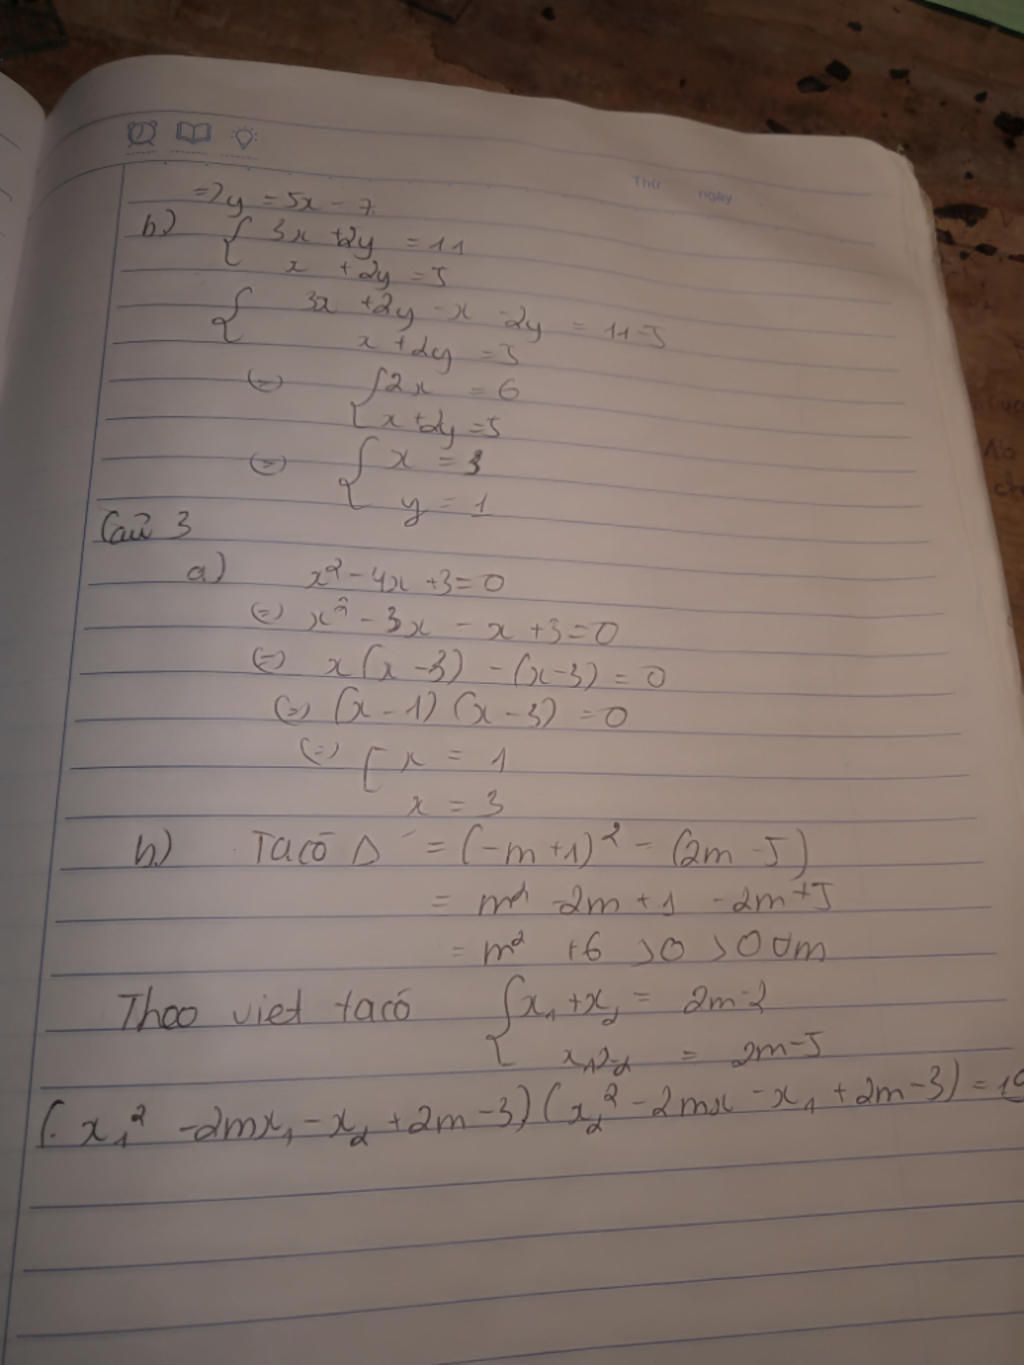 Thứ ngày
=> y = 5x - 7.
b) { 3x + 2y = 11
x + 2y = 5
{ 3x + 2y - x - 2y = 11 - 5
x + 2y = 5
(=) { 2x = 6
x + 2y = 5
(=) { x = 3
y = 1
Caū 3
a) x² - 4x + 3 = 0
(=) x² - 3x - x + 3 = 0
(=) x(x - 3) - (x - 3) = 0
(=) (x - 1) (x - 3) = 0
(=) [ x = 1
x = 3
b) Ta có Δ' = (-m + 1)² - (2m - 5)
= m² - 2m + 1 - 2m + 5
= m² + 6 > 0 > 0 ∀m
Theo viet ta có { x₁ + x₂ = 2m - 2
x₁x₂ = 2m - 5
(x₁² - 2mx₁ - x₂ + 2m - 3) (x₂² - 2mx - x₁ + 2m - 3) = 19